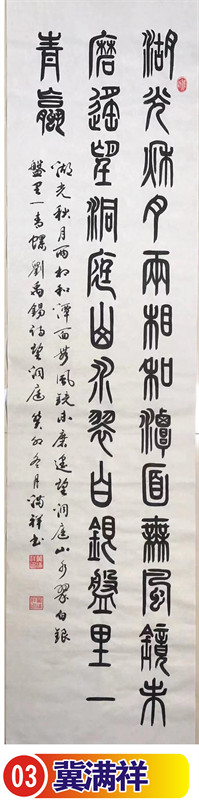 湖光秋月兩相和潭面無風鏡未
磨遙望洞庭山水翠白銀盤里一
青蠃
湖光秋月兩相和潭面無風鏡未磨遙望洞庭山水翠白銀
盤里一青螺劉禹錫詩望洞庭癸卯冬月满祥书
03 冀满祥